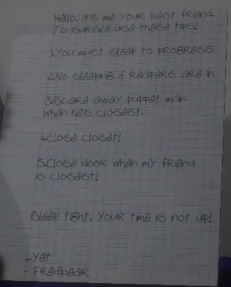 Hello. it's me your best friend
To survive use these tips!
1.You must sleep to progress
2.No sleeping if Reapers are in
3.Scare away puppet man
when hes closest.
4.close closet!
5.Close door when my friend
is closest!
sleep tight. Your time is not up!
- Yet
- Fredbear